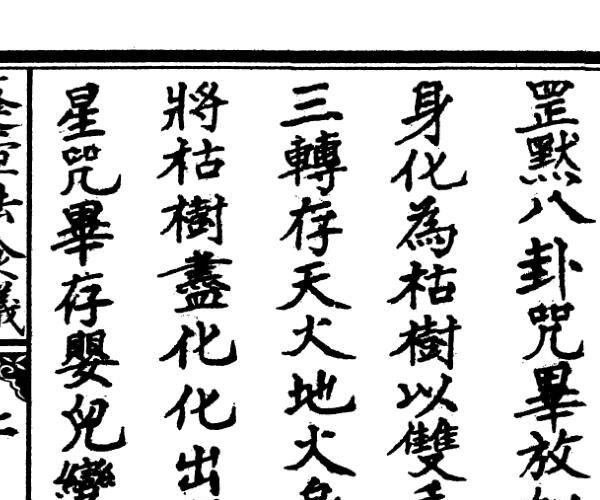 罡默八卦咒畢放
身化為枯樹以雙手
三轉存天火地火
將枯樹盡化化出
星咒畢存嬰兒
靈法会儀